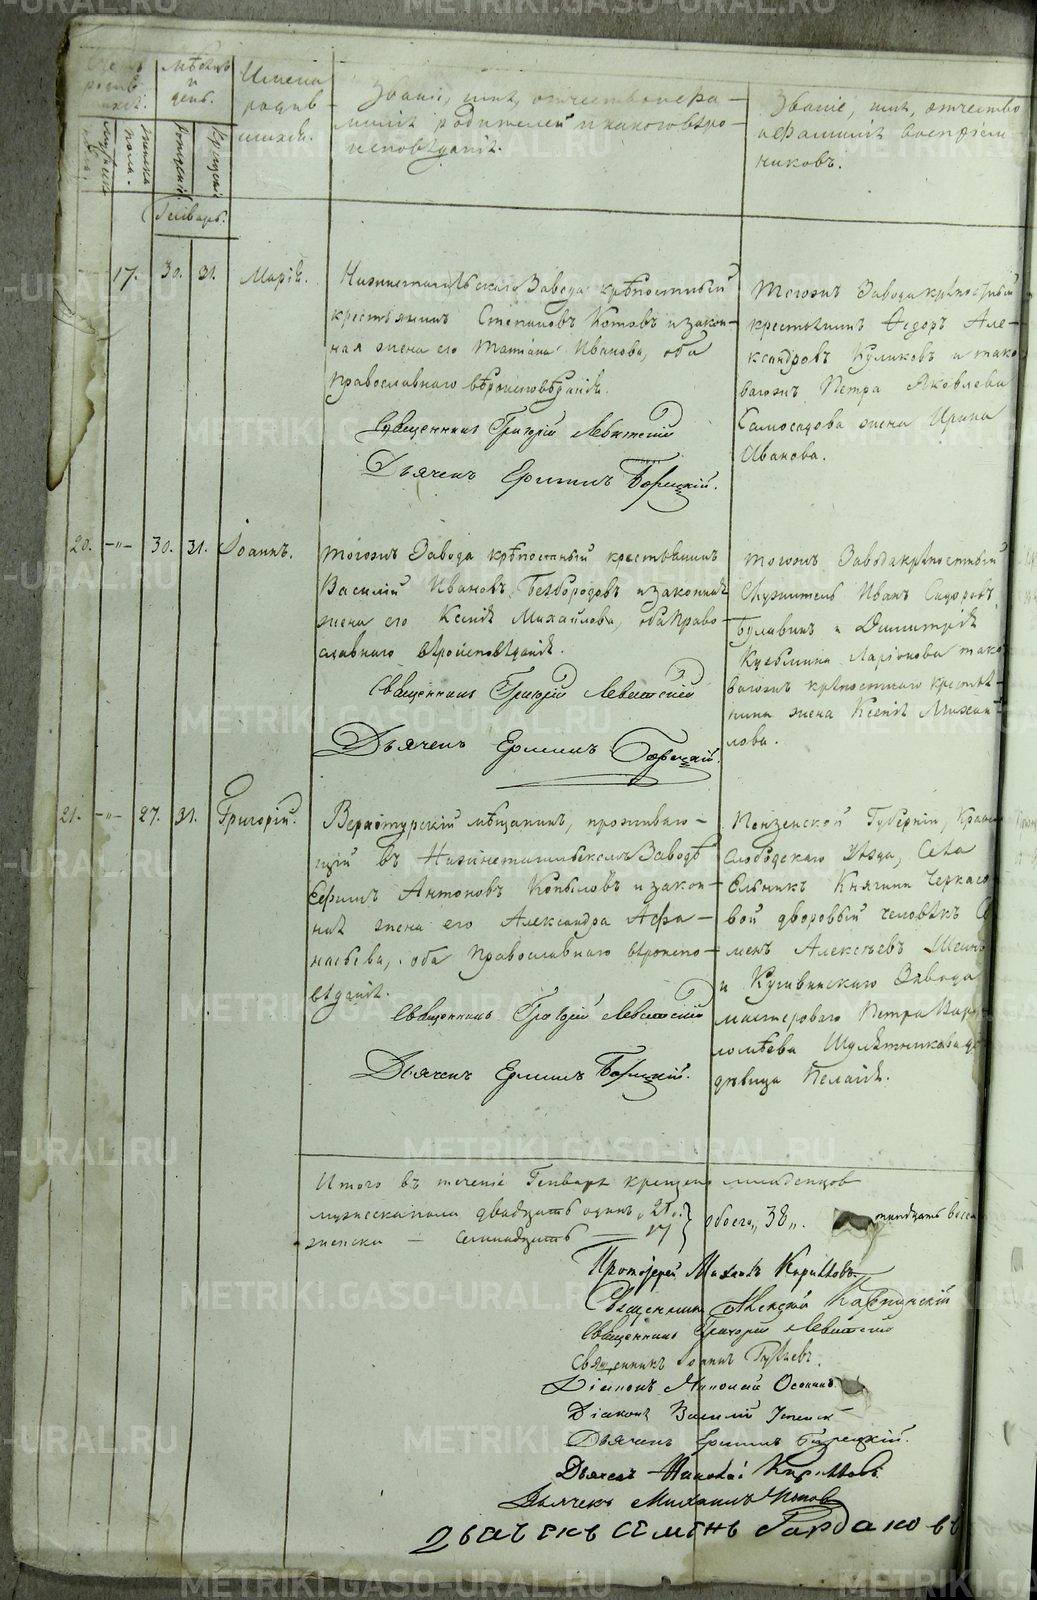 Мѣсяцъ и день.
Имена родившихся.
Званіе, имя, отчество и фамилія родителей и какого вѣроисповѣданія.
Званіе, имя, отчество и фамилія воспріемниковъ.
Генварь.
17. 30. 31. Марія.
Нижнетагильскаго Завода крѣпостный
крестьянинъ Степановъ Котовъ и закон-
ная жена его Татіана Иванова, оба
православнаго вѣроисповѣданія.
Священникъ Григорій Левитскій
Дьячекъ Ермилъ Борецкій.
Тогожъ Завода крѣпостный
крестьянинъ Ѳедоръ Але-
ксандровъ Куликовъ и тако
вагожъ Петра Яковлева
Самосадова жена Ирина
Иванова.
20. -"- 30. 31. Іоаннъ.
Тогожъ Завода крѣпостный крестьянинъ
Василій Ивановъ Безбородовъ и законная
жена его Ксенія Михайлова, оба право-
славнаго вѣроисповѣданія.
Священникъ Григорій Левитскій
Дьячекъ Ермилъ Борецкій.
Тогожъ Завода крѣпостный
служитель Иванъ Сидоровъ
Булавинъ и Димитрія
Кузьмина Ларіонова тако
вагожъ крѣпостнаго крестья-
нина жена Ксенія Михай-
лова.
21. -"- 27. 31. Григорій.
Верхотурскій мѣщанинъ, прожива-
щій въ Нижнетагильскомъ Заводѣ
Ефимъ Антоновъ Копыловъ и закон-
ная жена его Александра Афа-
насьева, оба православнаго вѣроиспо-
вѣданія.
Священникъ Григорій Левитскій
Дьячекъ Ермилъ Борецкій.
Пензенской Губерніи, Красно
слободскаго Уѣзда, Села
Ельникъ Княгини Черкасо
вой дворовый человѣкъ Се
менъ Алексѣевъ
и Кушвинскаго Завода
мастероваго Петра Вар
ломѣева
дѣвица Пелагія.
Итого въ теченіе Генваря крещено младенцовъ
мужеска пола двадцать одинъ "21".
женска — семнадцать — 17
обоего "38".
тридцать восемь
Протоіерей Михаилъ Кирилловъ
Священникъ Алексѣй Карпинскій
Священникъ Григорій Левитскій
Священникъ Іоаннъ
Діаконъ Николай Осокинъ
Діаконъ Василій
Дьячекъ Ермилъ Борецкій.
Дьячекъ Николай Кирилловъ
Дьячекъ Михаилъ Поповъ
дьячекъ семенъ
METRIKI.GASO-URAL.RU